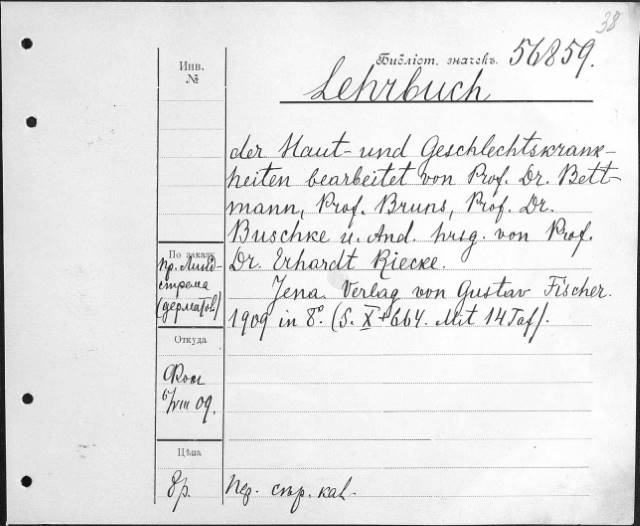 38
Инв.
№
Библіот. значекъ. 56859.
Lehrbuch
der Haut- und Geschlechtskrank-
heiten bearbeitet von Prof. Dr. Bett-
mann, Prof. Bruns, Prof. Dr.
Buschke u. And. hrsg. von Prof.
Dr. Erhardt Riecke.
Jena. Verlag von Gustav Fischer.
1909 in 8°. (S. X + 664. Mit 14 Taf).
По заказу
пр. Линд-
стрема
(дерматол)
Откуда
6/VIII 09.
Цѣна
8р.
кал.